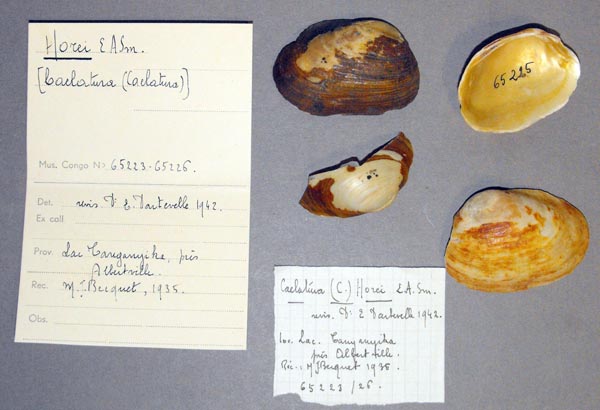 Horei E A Sm.
[Caelatura (Caelatura)]
Mus. Congo No 65223-65226.
Det. revis. Dr E. Dartevelle 1942.
Ex coll
Prov. Lac Tanganyika, près
Albertville.
Rec. M. J. Becquet, 1935.
Obs.
65225
Caelatura (C.) Horei E A Sm.
revis. Dr E Dartevelle 1942.
Loc. Lac. Tanganyika
près Albertville.
Réc.: M J Becquet 1935
65223/26.